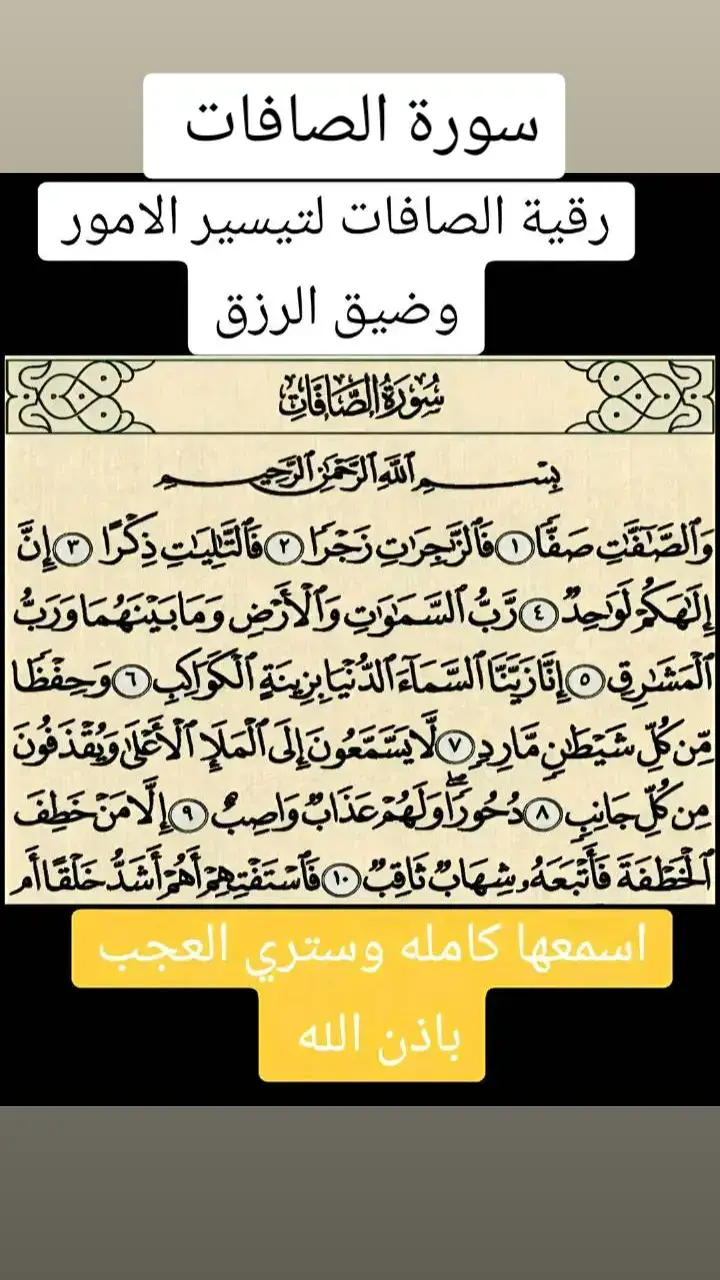 سورة الصافات
رقية الصافات لتيسير الامور
وضيق الرزق
سُورَةُ الصَّافَّاتِ
بِسْمِ ٱللَّهِ ٱلرَّحْمَٰنِ ٱلرَّحِيمِ
وَٱلصَّٰٓفَّٰتِ صَفًّا ١ فَٱلزَّٰجِرَٰتِ زَجْرًا ٢ فَٱلتَّٰلِيَٰتِ ذِكْرًا ٣ إِنَّ
إِلَٰهَكُمْ لَوَٰحِدٌ ٤ رَّبُّ ٱلسَّمَٰوَٰتِ وَٱلْأَرْضِ وَمَا بَيْنَهُمَا وَرَبُّ
ٱلْمَشَٰرِقِ ٥ إِنَّا زَيَّنَّا ٱلسَّمَآءَ ٱلدُّنْيَا بِزِينَةٍ ٱلْكَوَاكِبِ ٦ وَحِفْظًا
مِّن كُلِّ شَيْطَٰنٍ مَّارِدٍ ٧ لَّا يَسَّمَّعُونَ إِلَى ٱلْمَلَإِ ٱلْأَعْلَىٰ وَيُقْذَفُونَ
مِن كُلِّ جَانِبٍ ٨ دُحُورًا ۖ وَلَهُمْ عَذَابٌ وَاصِبٌ ٩ إِلَّا مَنْ خَطِفَ
ٱلْخَطْفَةَ فَأَتْبَعَهُۥ شِهَابٌ ثَاقِبٌ ١٠ فَٱسْتَفْتِهِمْ أَهُمْ أَشَدُّ خَلْقًا أَم
اسمعها كامله وستري العجب
باذن الله